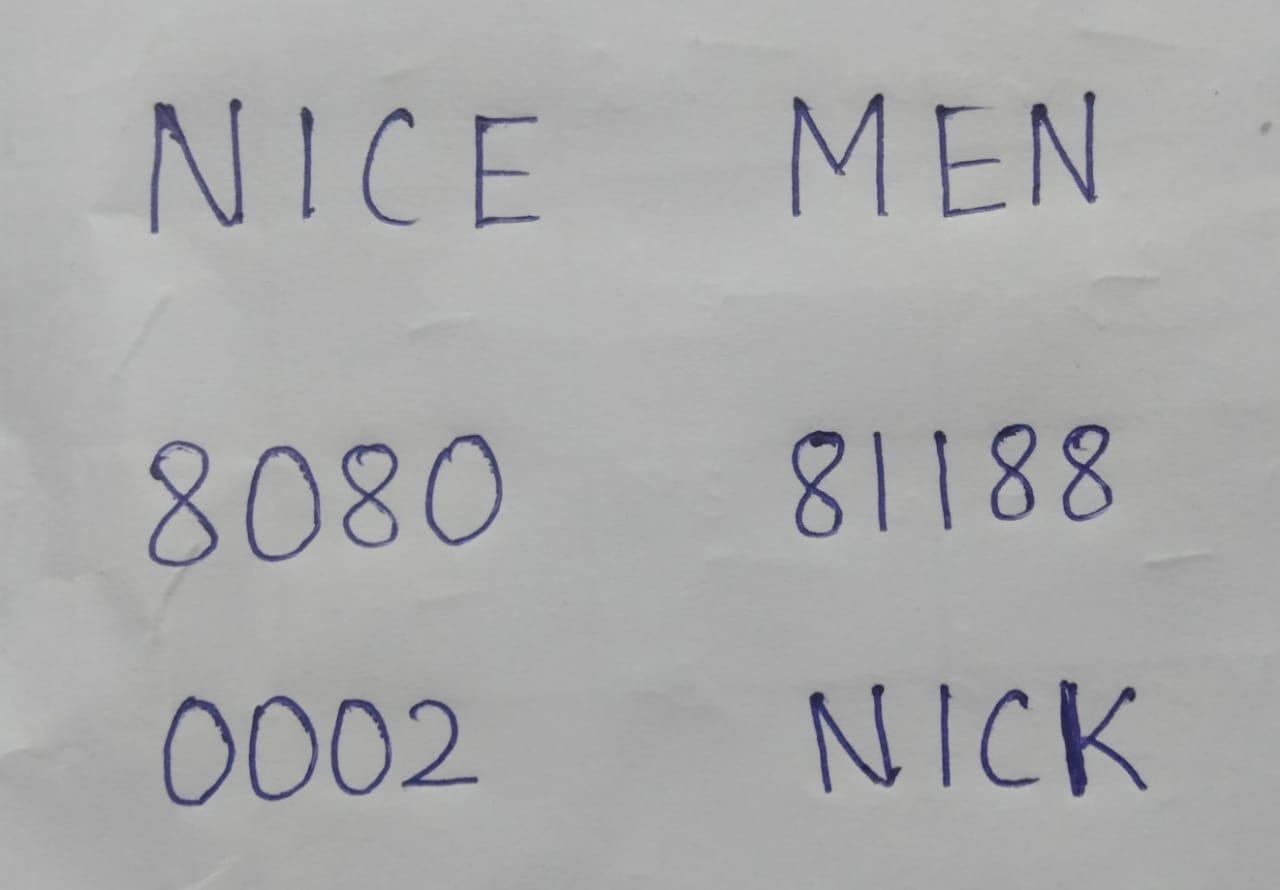 NICE MEN
8080 81188
0002 NICK